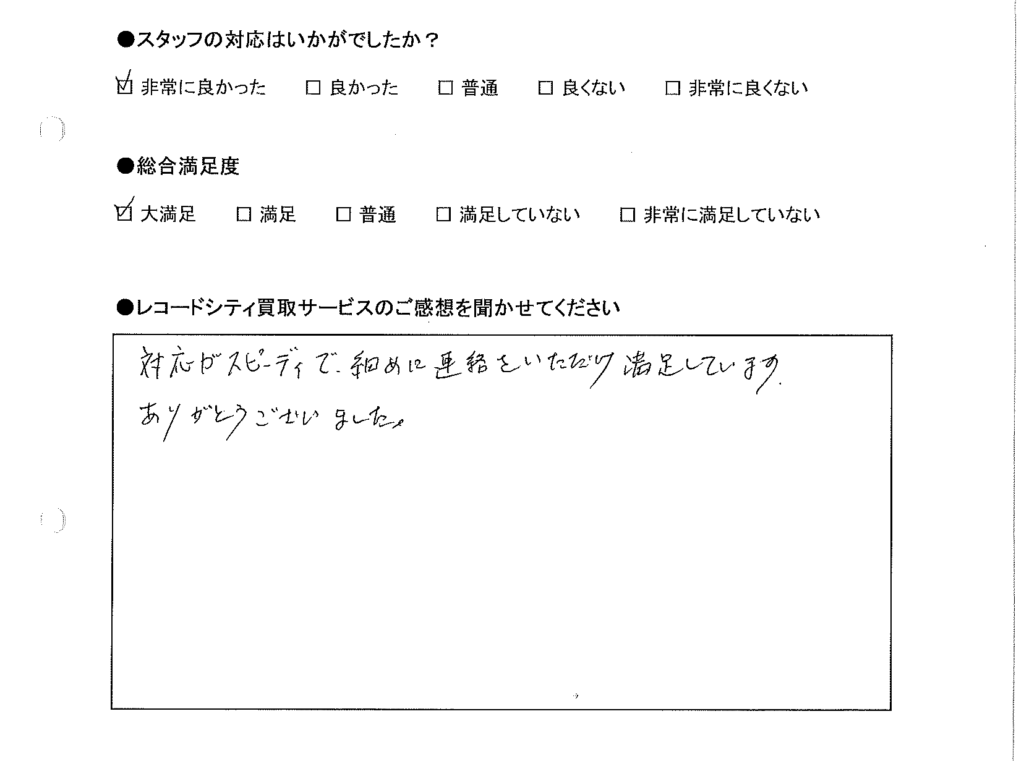 ●スタッフの対応はいかがでしたか？
☑ 非常に良かった □ 良かった □ 普通 □ 良くない □ 非常に良くない
●総合満足度
☑ 大満足 □ 満足 □ 普通 □ 満足していない □ 非常に満足していない
●レコードシティ買取サービスのご感想を聞かせてください
対応がスピーディで、細めに連絡をいただけ満足しています。
ありがとうございました。